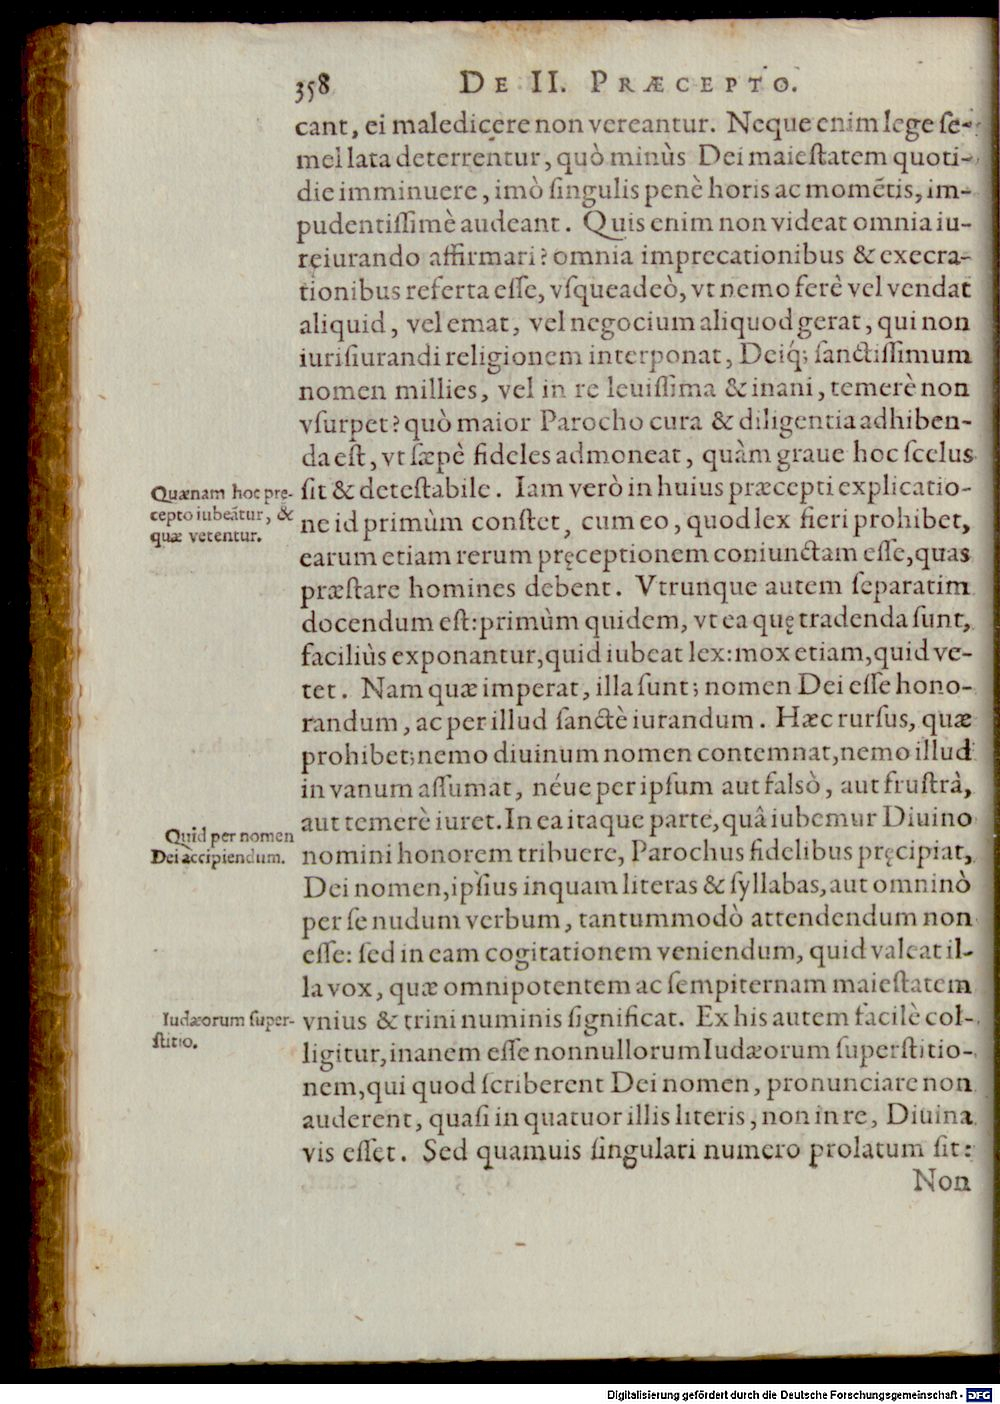 358 DE II. PRÆCEPTO.
cant, ei maledicere non vereantur. Neque enim lege ſe-
mel lata deterrentur, quò minùs Dei maieſtatem quoti-
die imminuere, imò ſingulis penè horis ac momẽtis, im-
pudentiſſimè audeant. Quis enim non videat omnia iu-
reiurando affirmari? omnia imprecationibus & execra-
tionibus referta eſſe, vſqueadeò, vt nemo ferè vel vendat
aliquid, vel emat, vel negocium aliquod gerat, qui non
iuriſiurandi religionem interponat, Deiq́; ſanctiſſimum
nomen millies, vel in re leuiſſima & inani, temerè non
vſurpet? quò maior Parocho cura & diligentia adhiben-
da eſt, vt ſæpè fideles admoneat, quàm graue hoc ſcelus
ſit & deteſtabile. Iam verò in huius præcepti explicatio-
ne id primùm conſtet, cum eo, quod lex fieri prohibet,
earum etiam rerum pręceptionem coniunctam eſſe, quas
præſtare homines debent. Vtrunque autem ſeparatim
docendum eſt: primùm quidem, vt ea quę tradenda ſunt,
faciliùs exponantur, quid iubeat lex: mox etiam, quid ve-
tet. Nam quæ imperat, illa ſunt; nomen Dei eſſe hono-
randum, ac per illud ſanctè iurandum. Hæc rurſus, quæ
prohibet; nemo diuinum nomen contemnat, nemo illud
in vanum aſſumat, néue per ipſum aut falsò, aut fruſtrà,
aut temerè iuret. In ea itaque parte, quâ iubemur Diuino
nomini honorem tribuere, Parochus fidelibus pręcipiat,
Dei nomen, ipſius inquam literas & ſyllabas, aut omninò
per ſe nudum verbum, tantummodò attendendum non
eſſe: ſed in eam cogitationem veniendum, quid valeat il-
la vox, quæ omnipotentem ac ſempiternam maieſtatem
vnius & trini numinis ſignificat. Ex his autem facilè col-
ligitur, inanem eſſe nonnullorum Iudæorum ſuperſtitio-
nem, qui quod ſcriberent Dei nomen, pronunciare non
auderent, quaſi in quatuor illis literis, non in re, Diuina
vis eſſet. Sed quamuis ſingulari numero prolatum ſit:
Non
Quænam hoc pre-
cepto iubeãtur, &
quæ vetentur.
Quid per nomen
Dei accipiendum.
Iudæorum ſuper-
ſtitio.
Digitalisierung gefördert durch die Deutsche Forschungsgemeinschaft - DFG